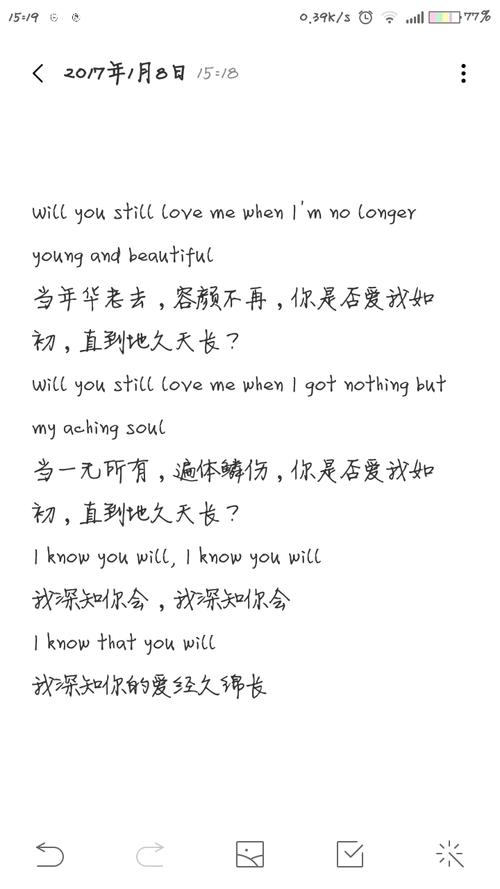 15:19 0.39K/s 77%
2017年1月8日 15:18
will you still love me when I'm no longer
young and beautiful
当年华老去，容颜不再，你是否爱我如
初，直到地久天长？
will you still love me when I got nothing but
my aching soul
当一无所有，遍体鳞伤，你是否爱我如
初，直到地久天长？
I know you will, I know you will
我深知你会，我深知你会
I know that you will
我深知你的爱经久绵长